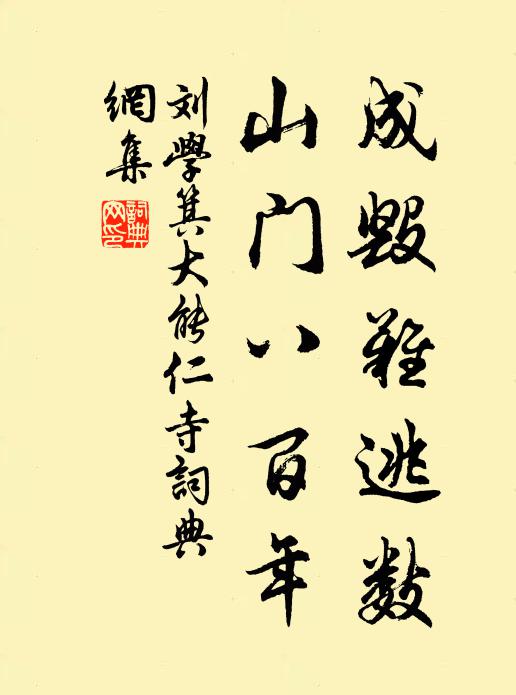 成毁难逃数
山门八百年
刘学箕大能仁寺詞典
網集
詞典网印